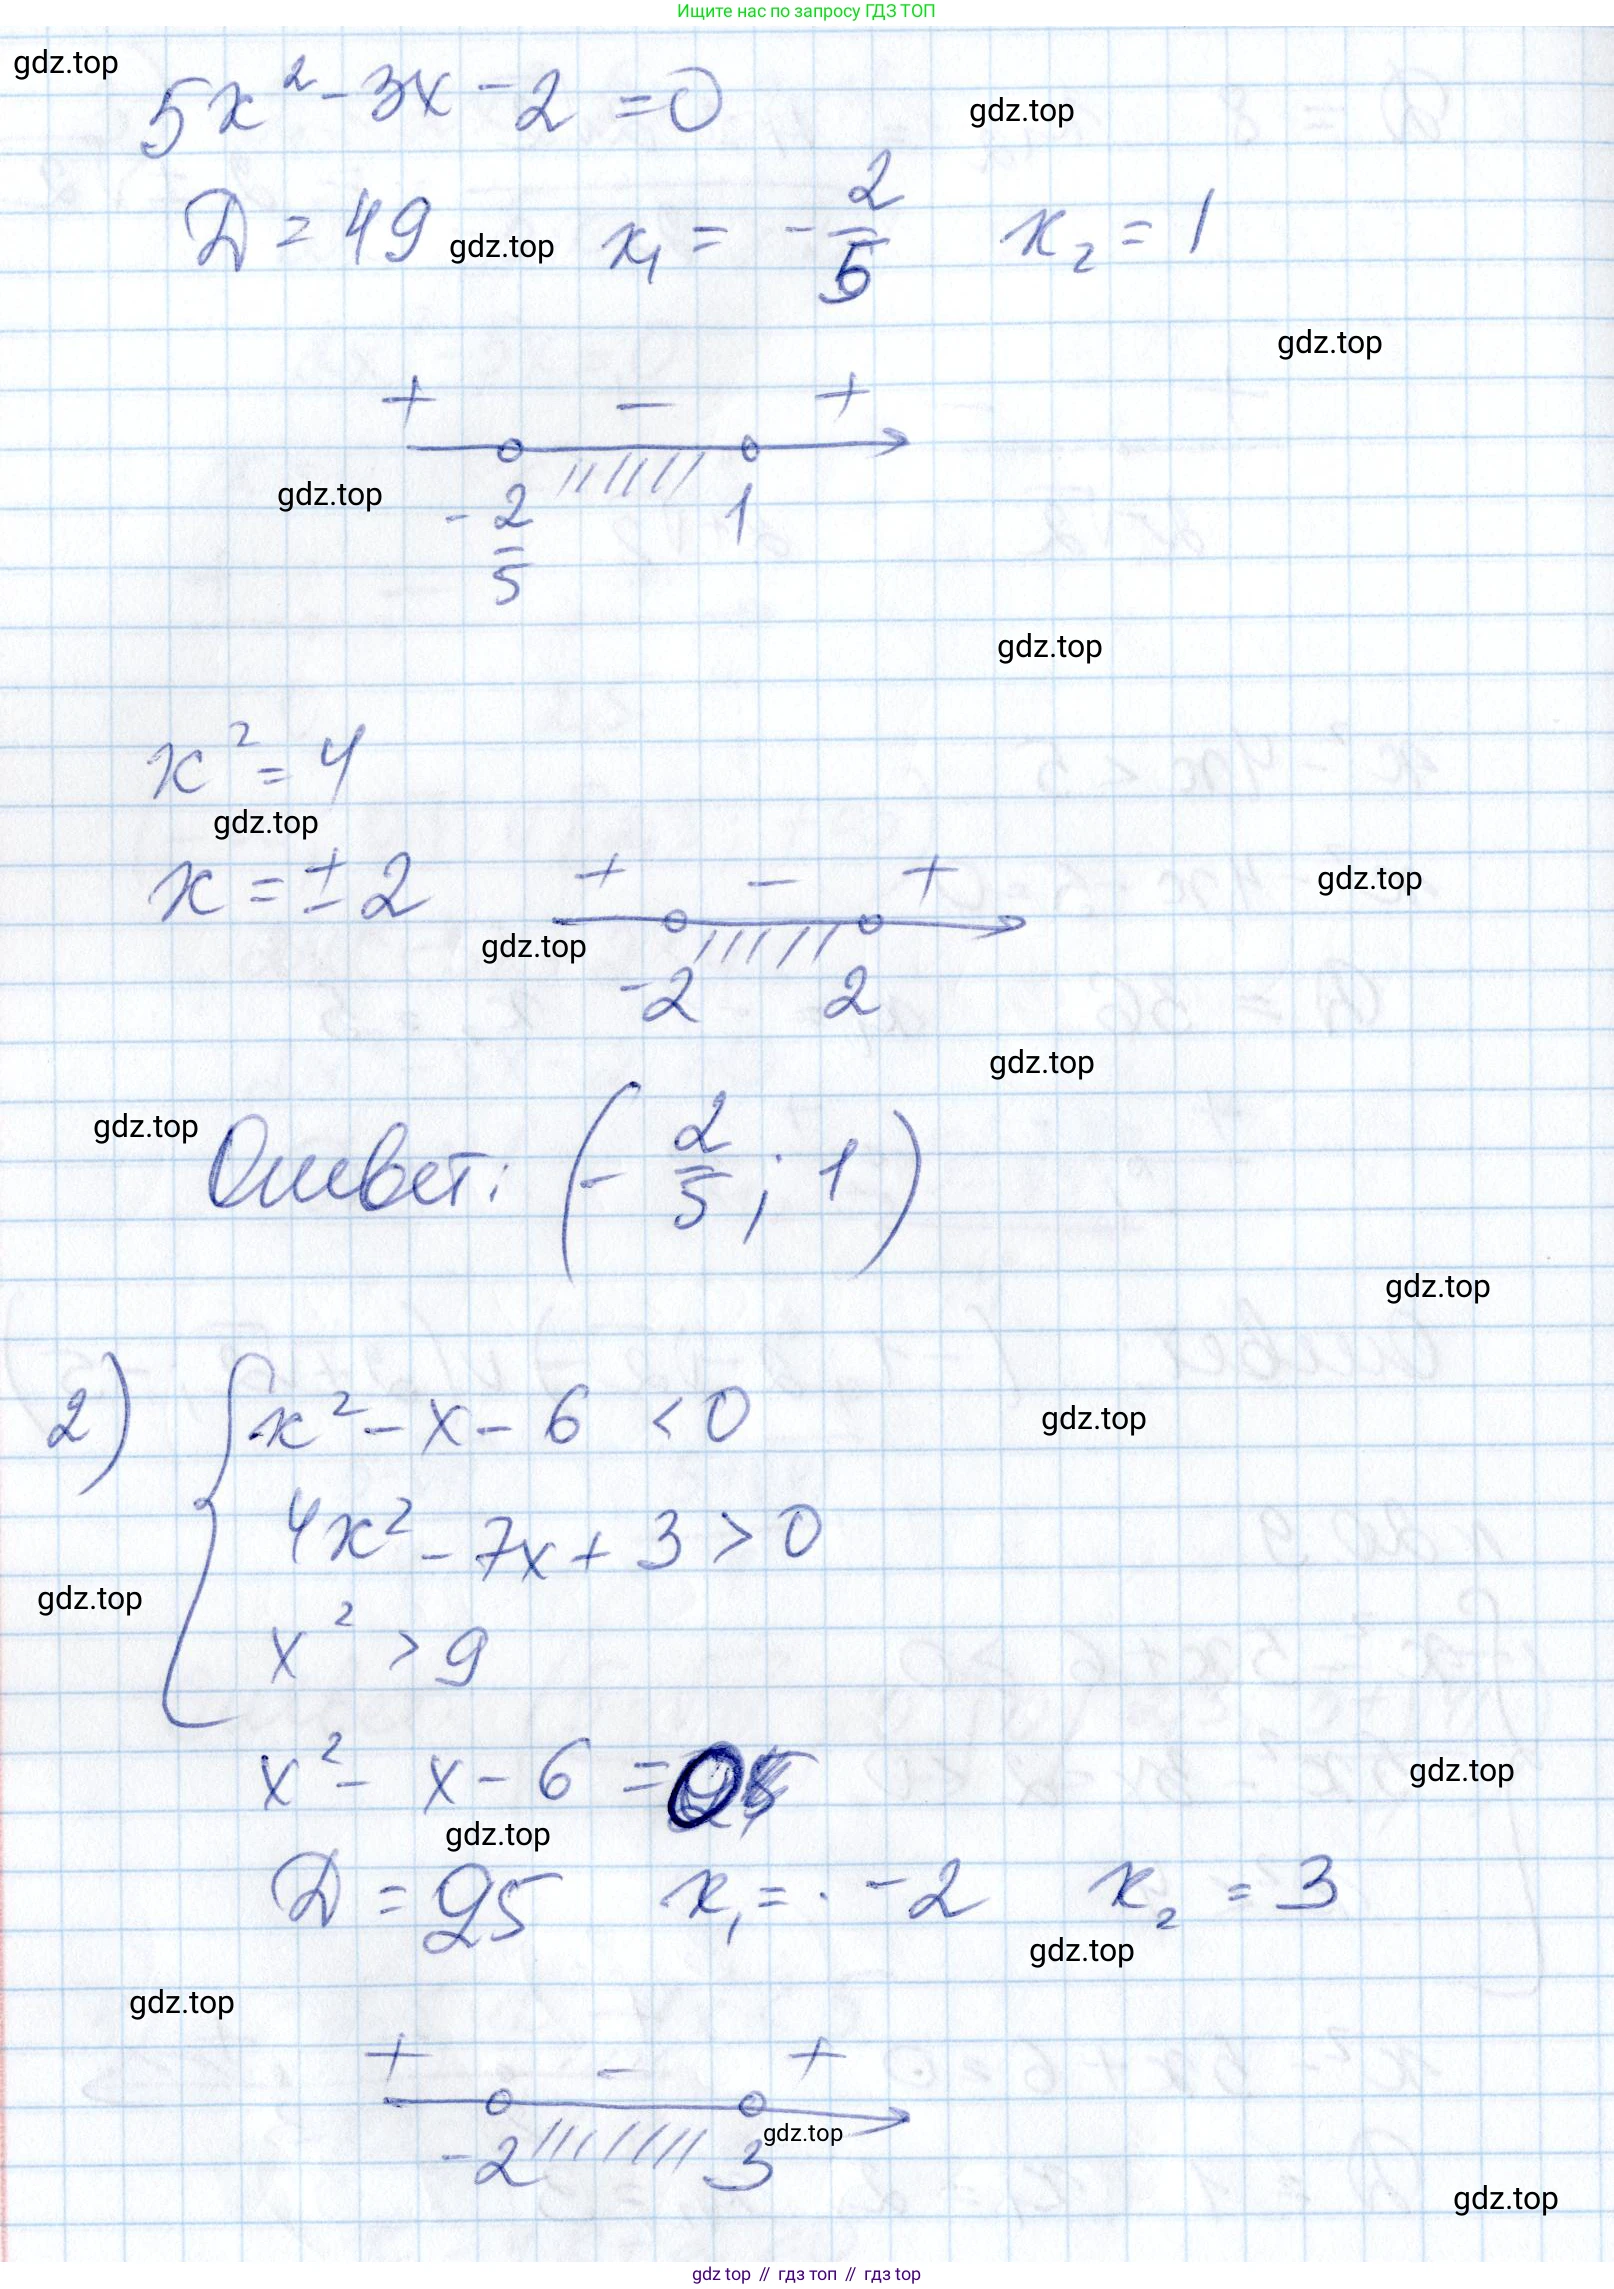 Ищите нас по запросу ГДЗ ТОП
gdz.top
5x² - 3x - 2 = 0
gdz.top
Д = 49 gdz.top x₁ = -2/5 x₂ = 1
gdz.top
+ - +
gdz.top
-2/5 1
gdz.top
x² = 4
gdz.top
x = ± 2 + - +
gdz.top
gdz.top
-2 2
gdz.top
gdz.top
Ответ: (-2/5; 1)
gdz.top
2) { x² - x - 6 < 0
gdz.top
4x² - 7x + 3 > 0
gdz.top
x² > 9
x² - x - 6 = 0
gdz.top
gdz.top
Д = 25 x₁ = -2 x₂ = 3
gdz.top
gdz.top
+ - +
gdz.top
-2 3
gdz.top
gdz top // гдз топ // гдз top